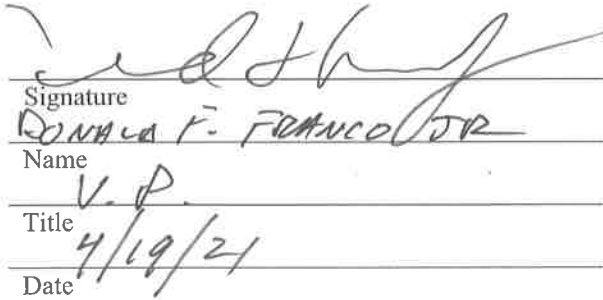 Signature
DONALD F. FRANCO JR
Name
V. P.
Title
4/19/21
Date